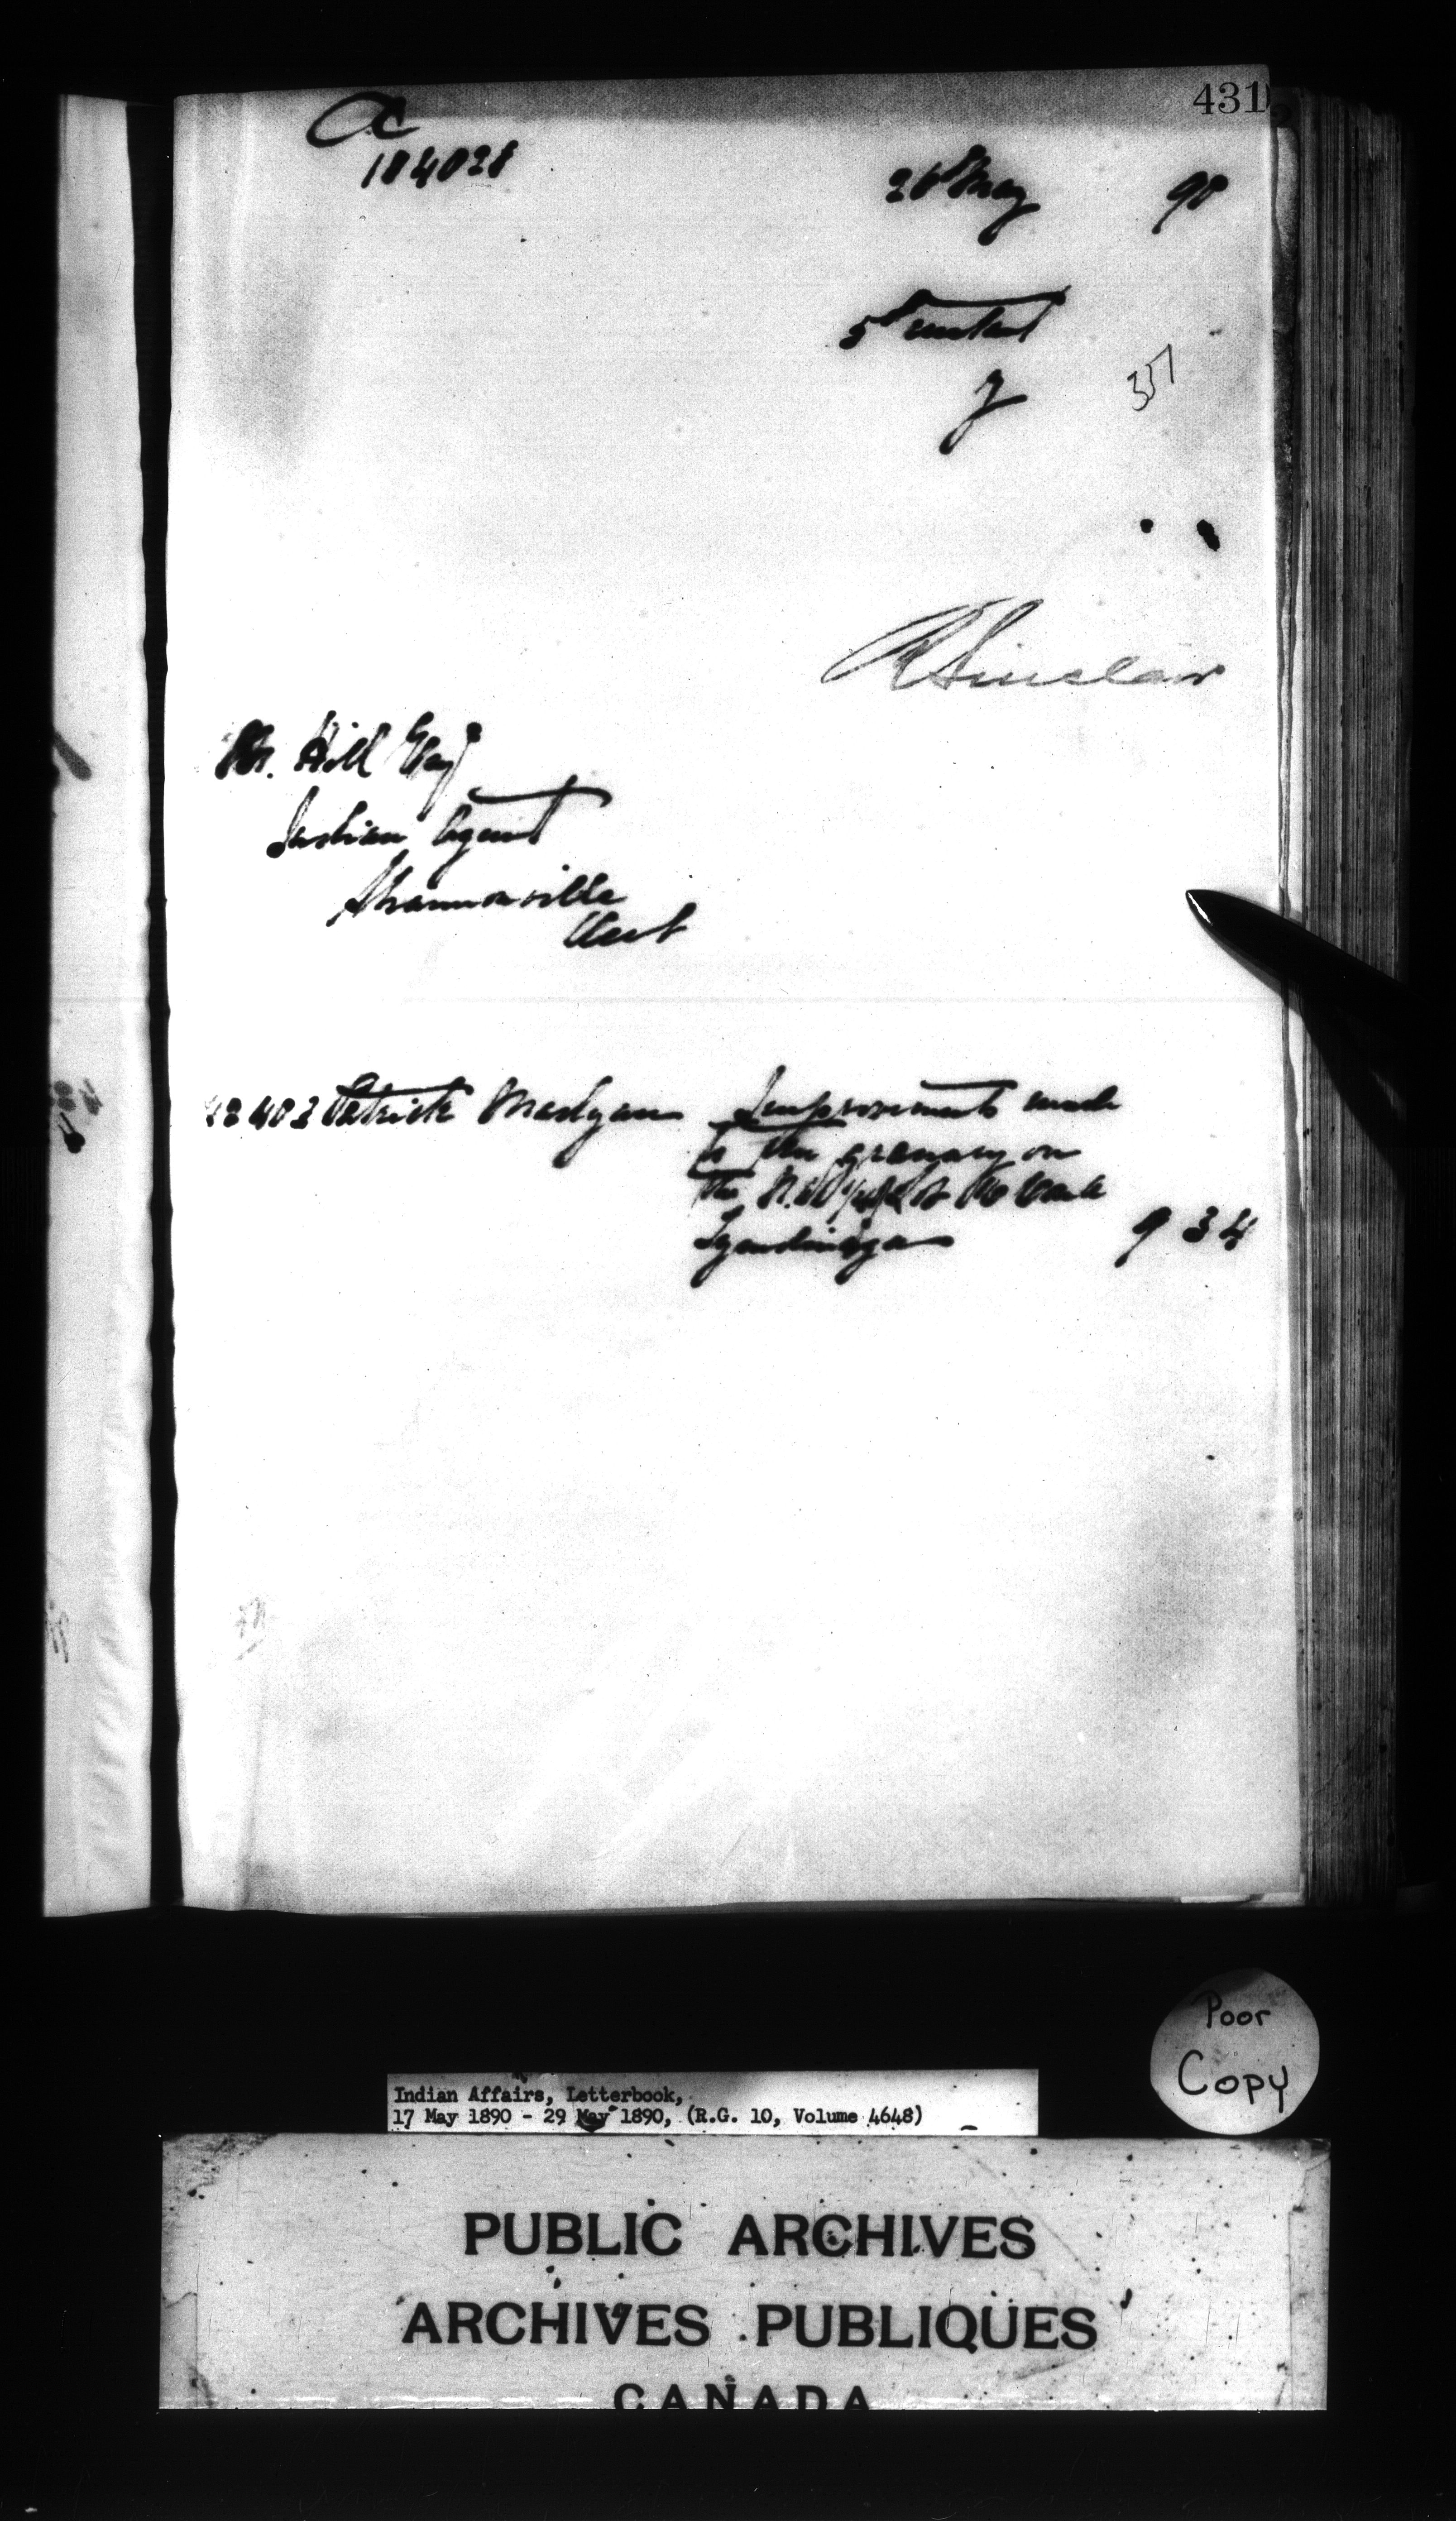 431
104028
May 90
5th instant
357
R Sinclair
M. Hill Esq
Indian Agent
Shannonville
Ont
Patrick Madigan Improvements made
to the granary on
the
Tyendinaga 9 34
Poor
Copy
Indian Affairs, Letterbook,
17 May 1890 - 29 May 1890, (R.G. 10, Volume 4648)
PUBLIC ARCHIVES
ARCHIVES PUBLIQUES
CANADA